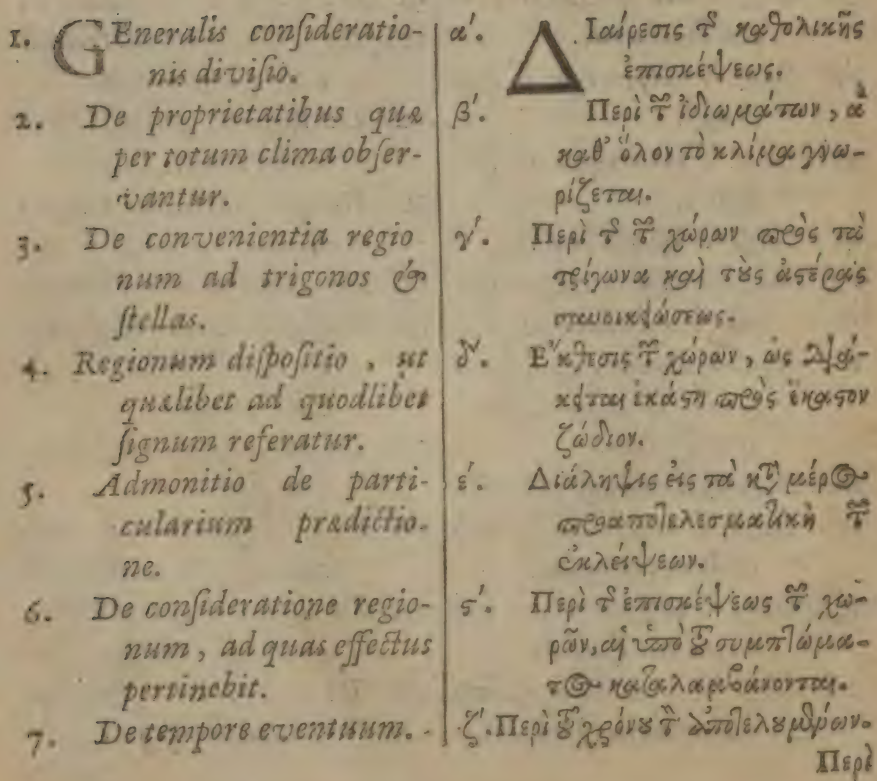 1. GEneralis consideratio-
nis divisio.
2. De proprietatibus quæ
per totum clima obser-
vantur.
3. De convenientia regio
num ad trigonos &
stellas.
4. Regionum dispositio, ut
quælibet ad quodlibet
signum referatur.
5. Admonitio de parti-
cularium prædictio-
ne.
6. De consideratione regio-
num, ad quas effectus
pertinebit.
7. De tempore eventuum.
α΄. ΔΙαίρεσις τῆς καθολικῆς
ἐπισκέψεως.
β΄. Περὶ τῶν ἰδιωμάτων, ἃ
καθ' ὅλον τὸ κλίμα γνω-
ρίζεται.
γ΄. Περὶ τῆς τῶν χώρων πρὸς τὰ
τρίγωνα καὶ τοὺς ἀστέρας
συνοικειώσεως.
δ΄. Ἔκθεσις τῶν χώρων, ὡς διά-
κειται ἑκάστη πρὸς ἕκαστον
ζώδιον.
ε΄. Διάληψις εἰς τὰ κατὰ μέρος
προαποτελεσματικὴ τῶν
ἐκλείψεων.
ς΄. Περὶ τῆς ἐπισκέψεως τῶν χω-
ρῶν, αἳ ὑπὸ τοῦ συμπτώμα-
τος καταλαμβάνονται.
ζ΄. Περὶ τοῦ χρόνου τῶν ἀποτελουμένων.
Περὶ